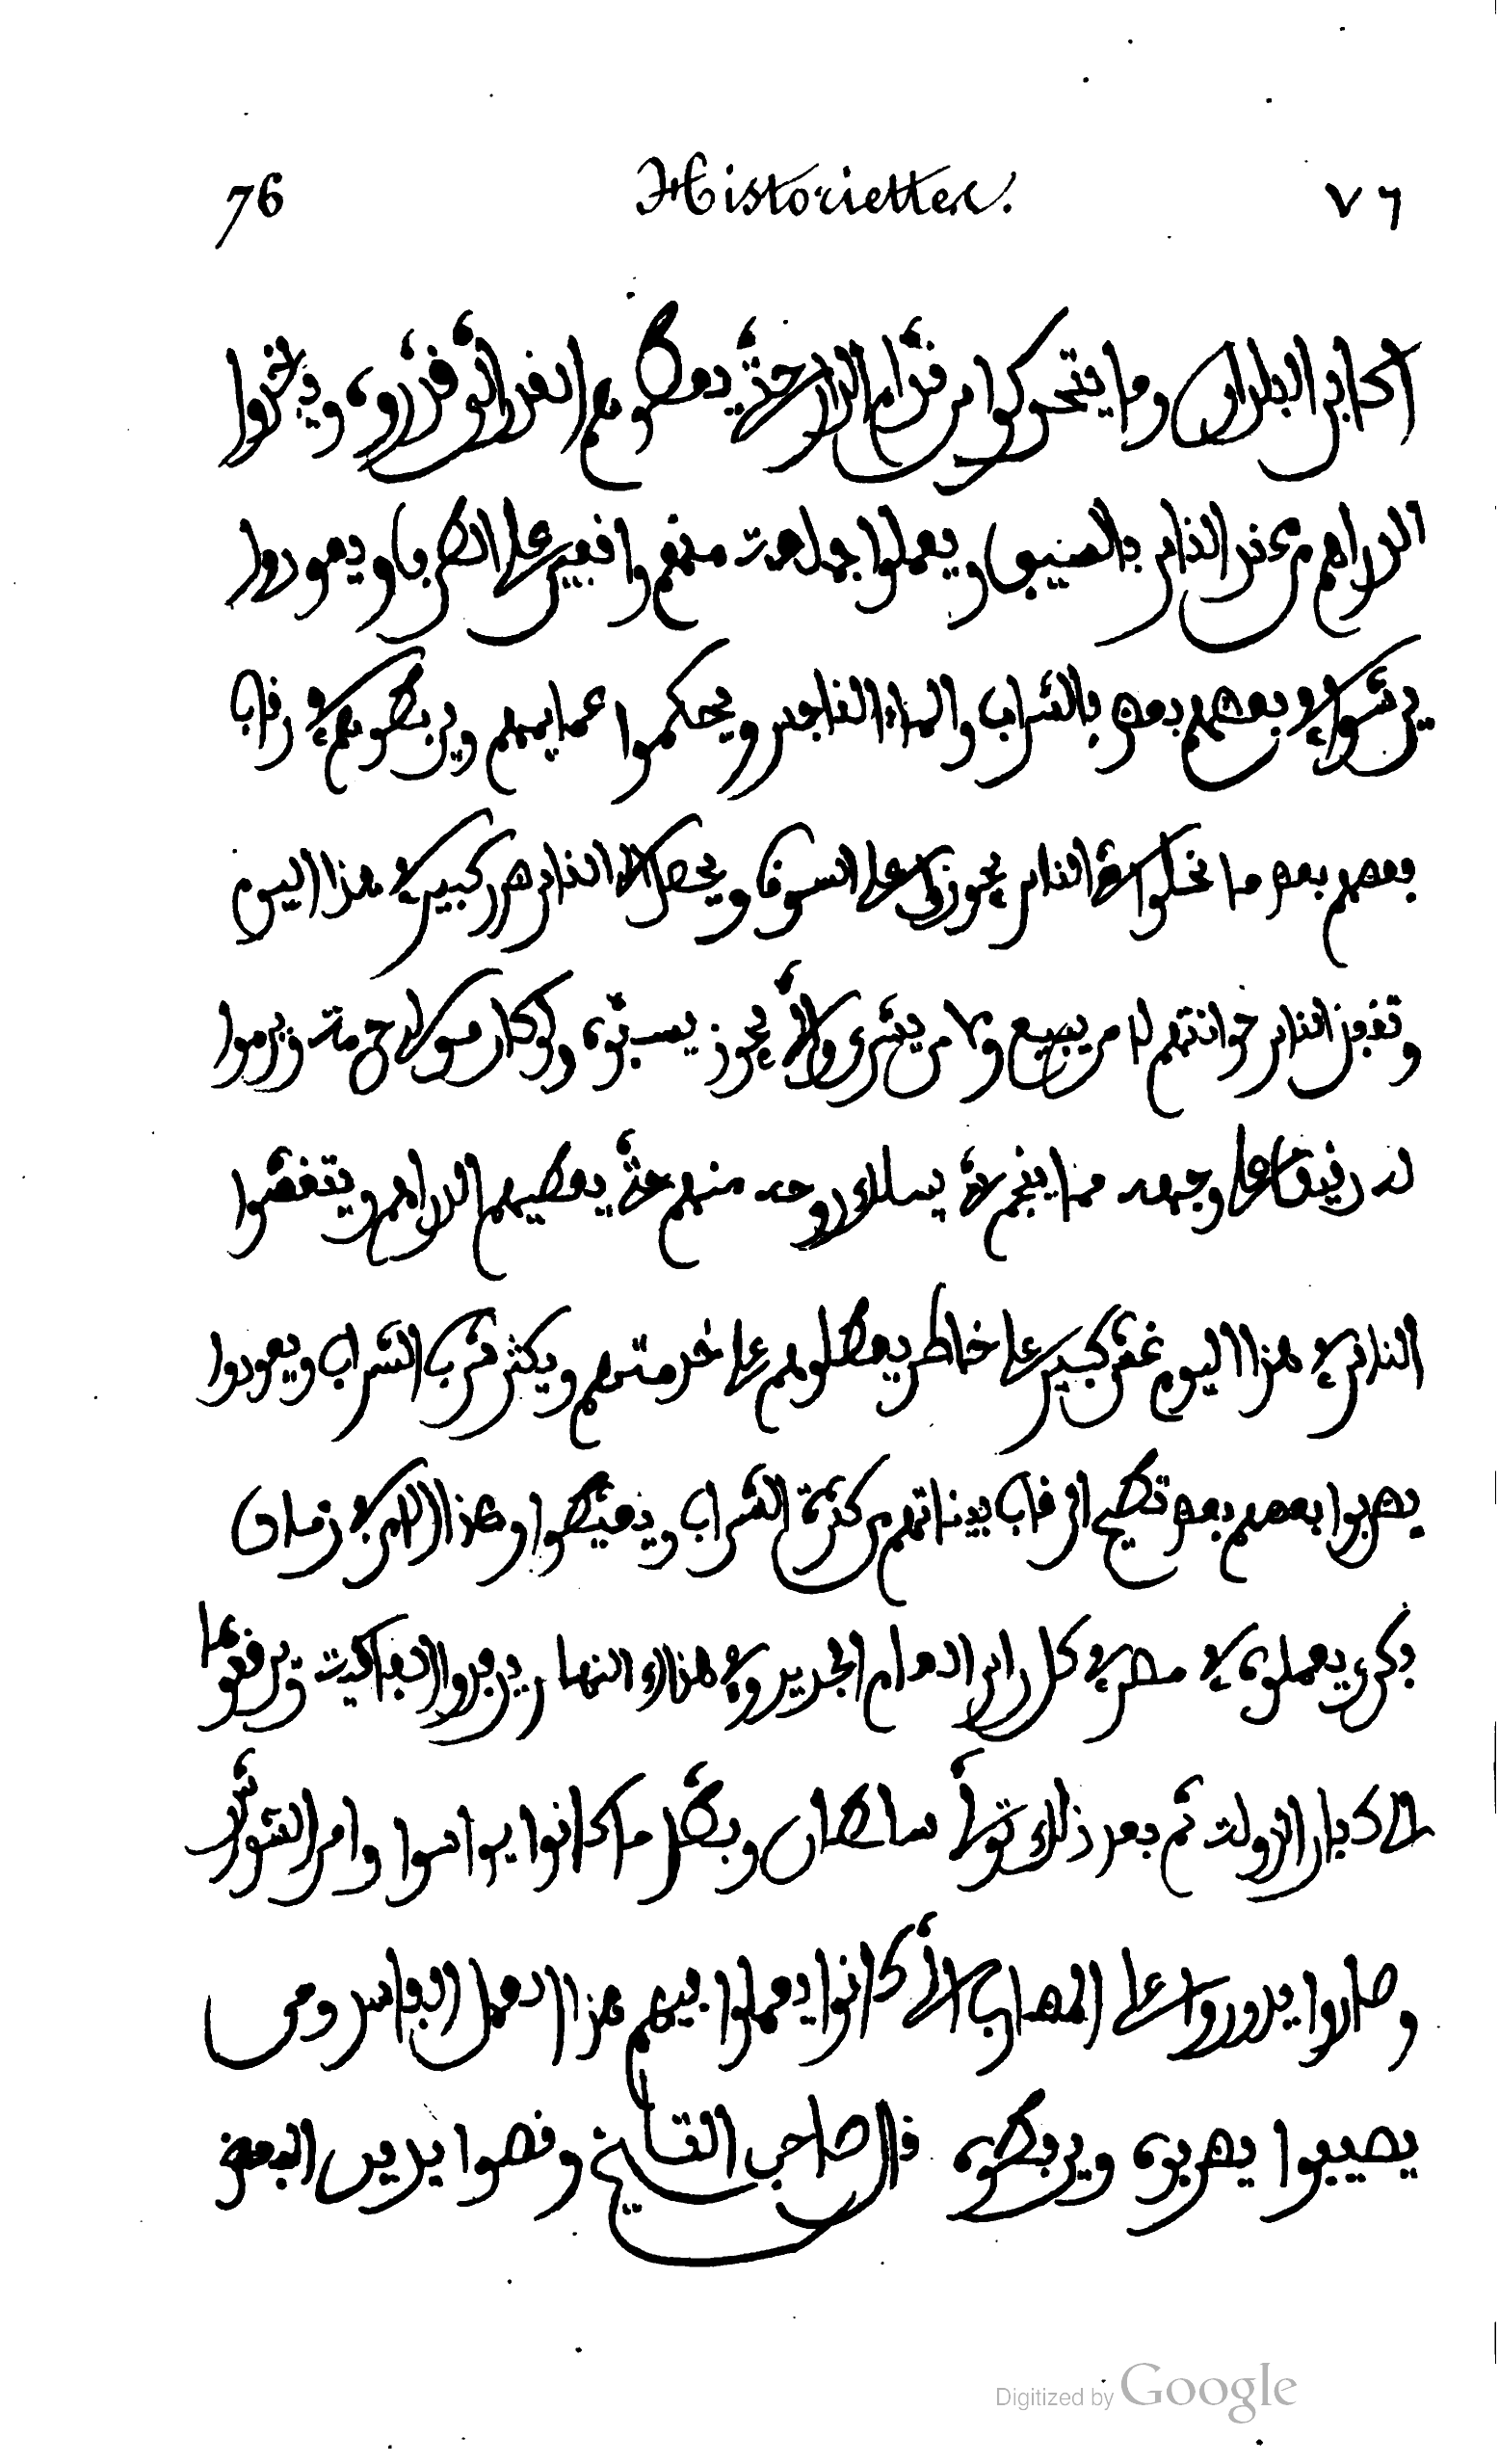 76 Historiettes. ٧٦
اكابر البلدان وما يتحركوا من قدام الدار حتى يعطوهم القدر الذى قدروه وياخدوا
الدراهم من عند الناس بالسيف ويعملوا جماعة منهم واقفين على الطرقا ويعودوا
يرشوا فى بعضهم بعض بالشراب والماء الفاجس ويحكموا عمايمهم ويربطوهم فى رقاب
بعضهم بعض ما تخلوا الناس يجوزوا على السوق ويحصل الى الناس ضرر كبير فى هذا اليوم
وتقفل الناس حوانتهم لا من يبيع ولا من يشرى والذى يجوز يسبوه ولو كان من له حرمة ويرموا
له زيبق على وجهه مما ينجم حتى يسلك روحه منهم حتى يعطيهم الدراهم ويتغشوا
الناس فى هذا اليوم غش كبير على خاطر يعطلوهم على خدمتهم ويكثر شرب الشراب ويعودوا
يضربوا بعضهم بعض تطيح الرقاب بيناتهم من كثرة الشراب ويعيطوا وهذا الامر فى زمان
بكرى يعملوه فى مصر فى كل راس العام الجديد وفى هذاك النهار يفرقوا الفواكيت ويرفعوها
الى كبار الدولة ثم بعد ذلك تولى سلطان وبطل ما كانوا يوالسوا وامر الشواش
وصاروا يدوروا على المضارب الذى كانوا يعملوا فيهم هذا العمل الفاسد ومن
يصيبوا يضربوه ويربطوه قال صاحب التاريخ وقصوا يدين البعض
Digitized by Google